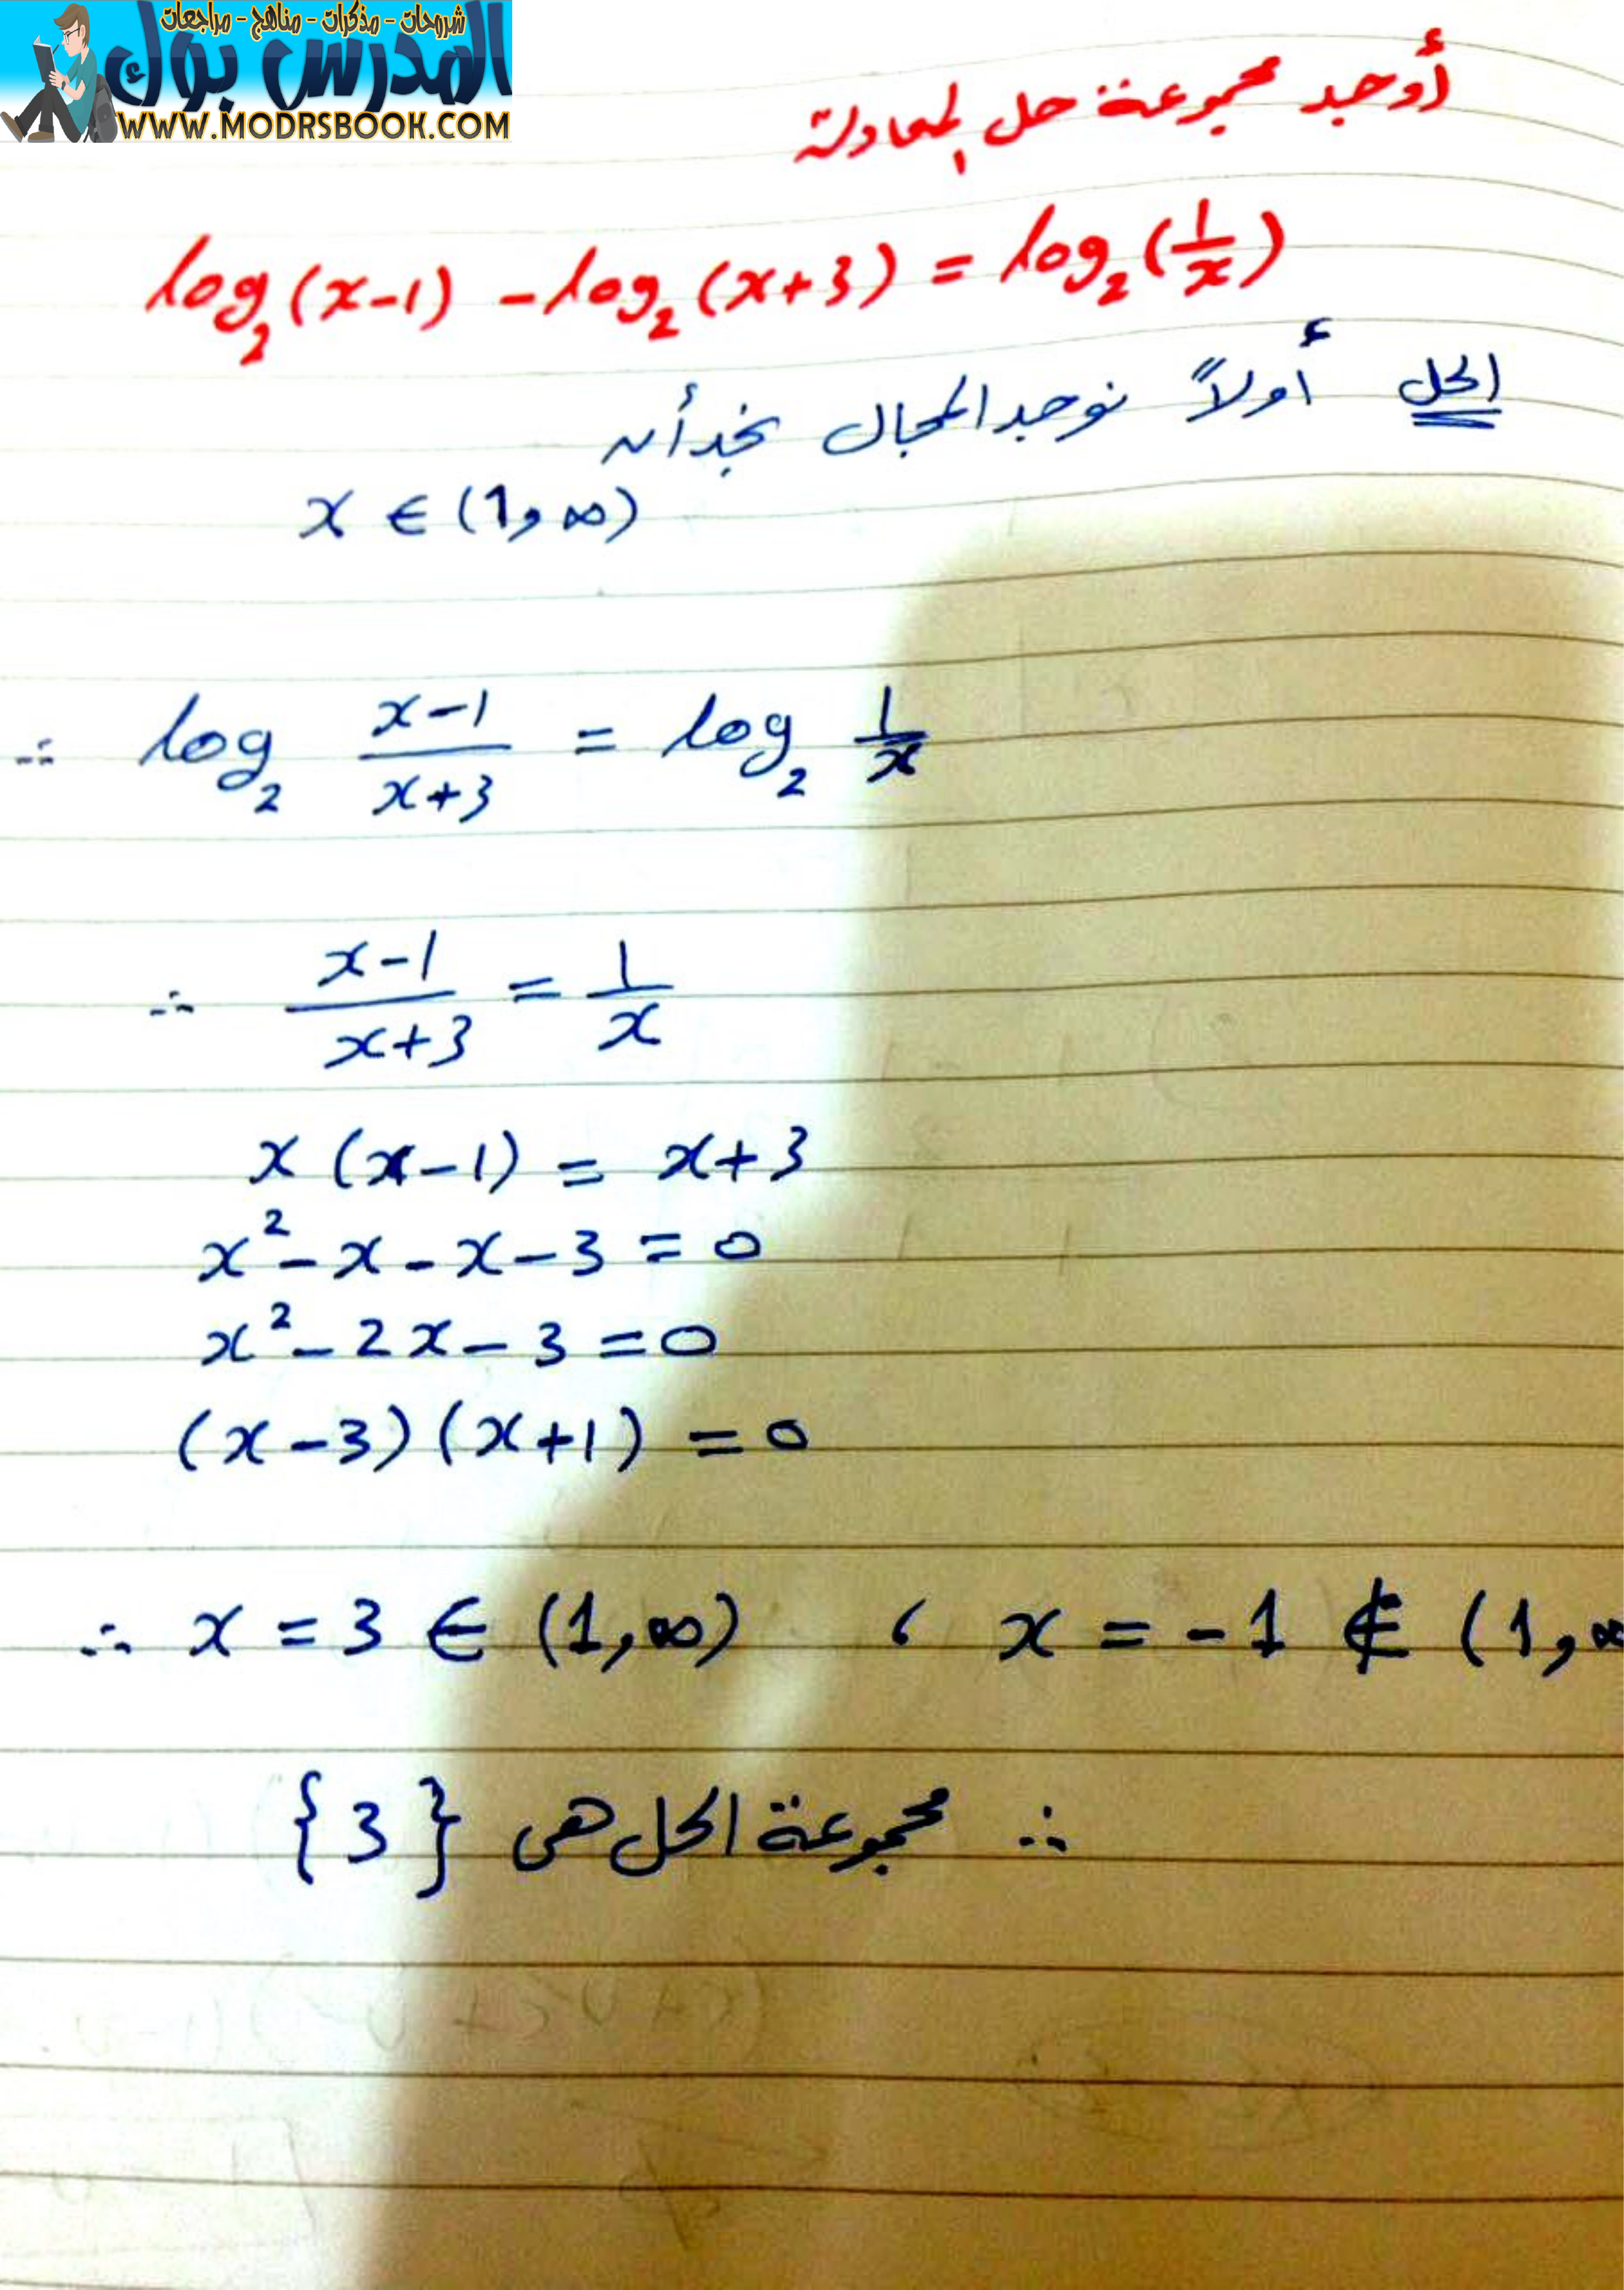 شروحات - مذكرات - مناهج - مراجعات
المدرس بوك
WWW.MODRSBOOK.COM
أوجد مجموعة حل المعادلة
log₂(x-1) - log₂(x+3) = log₂(1/x)
الحل أولاً نوجد المجال نجد أن
x ∈ (1, ∞)
∴ log₂ (x-1)/(x+3) = log₂ 1/x
∴ (x-1)/(x+3) = 1/x
x (x-1) = x+3
x² - x - x - 3 = 0
x² - 2x - 3 = 0
(x-3)(x+1) = 0
∴ x = 3 ∈ (1, ∞) ، x = -1 ∉ (1, ∞
∴ مجموعة الحل هى {3}